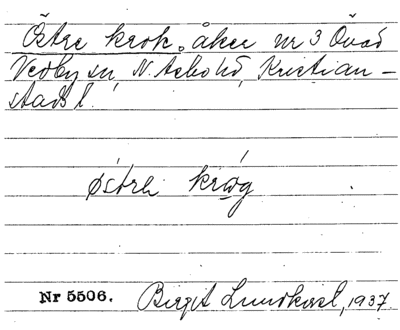 Östre krok. åker nr 3 Övad
Vedby sn, N. Åsbo hd, Kristian-
stads l.
østrə krog
Nr 5506. Birgit Lundkvist, 1937.